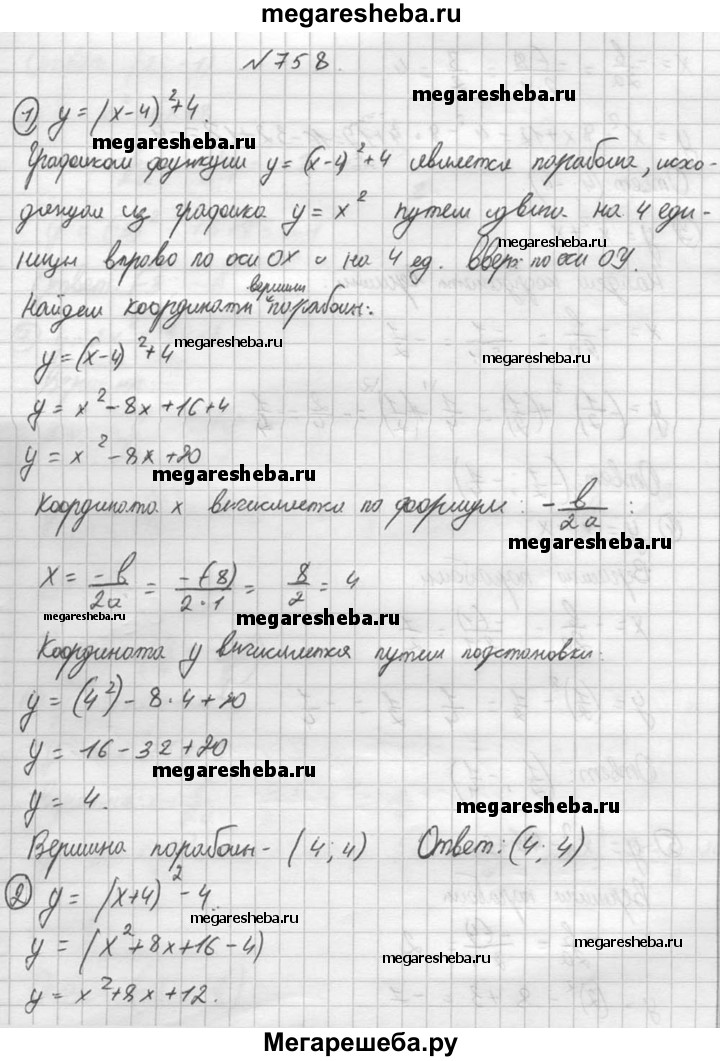 megaresheba.ru
№758.
megaresheba.ru
1) y=(x-4)²+4.
megaresheba.ru
Графиком функции y=(x-4)²+4 является парабола, исхо-
дящая из графика y=x² путем сдвига на 4 еди-
ницы вправо по оси OX и на 4 ед. вверх по оси OY.
Найдем координаты вершины параболы:
megaresheba.ru
megaresheba.ru
y=(x-4)²+4
y=x²-8x+16+4
y=x²-8x+20
megaresheba.ru
Координата x вычисляется по формуле: -b/2a:
megaresheba.ru
x = -b/2a = -(-8)/2·1 = 8/2 = 4
megaresheba.ru
megaresheba.ru
megaresheba.ru
Координата y вычисляется путем подстановки:
y=(4²)-8·4+20
y=16-32+20
megaresheba.ru
y=4.
megaresheba.ru
Вершина параболы - (4; 4) Ответ: (4; 4)
2) y=(x+4)²-4.
megaresheba.ru
y=(x²+8x+16-4)
megaresheba.ru
y=x²+8x+12.
Мегарешеба.ру